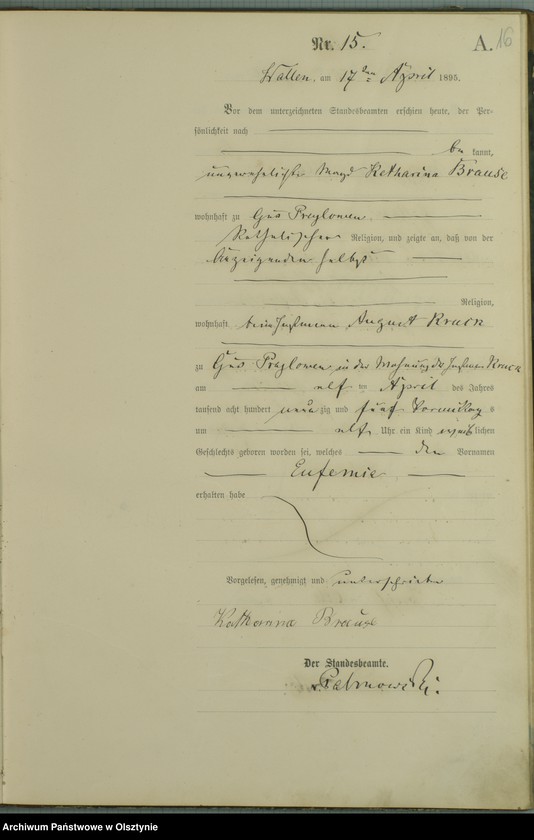 Nr. 15.
A. 16
Wallen, am 17ten April 1895.
Vor dem unterzeichneten Standesbeamten erschien heute, der Per-
sönlichkeit nach
be kannt,
unverehelichte Magd Katharina Brause
wohnhaft zu Gut Preylowen
Katholischer Religion, und zeigte an, daß von der
Anzeigenden selbst
Religion,
wohnhaft beim Instmann August Kruck
zu Gut Preylowen in der Wohnung des Instmann Kruck
am elf ten April des Jahres
tausend acht hundert neun zig und fünf Vormittag s
um elf Uhr ein Kind weib lichen
Geschlechts geboren worden sei, welches den Vornamen
Eufemie
erhalten habe
Vorgelesen, genehmigt und unterschrieben
Katharina Brause
Der Standesbeamte.
Archiwum Państwowe w Olsztynie